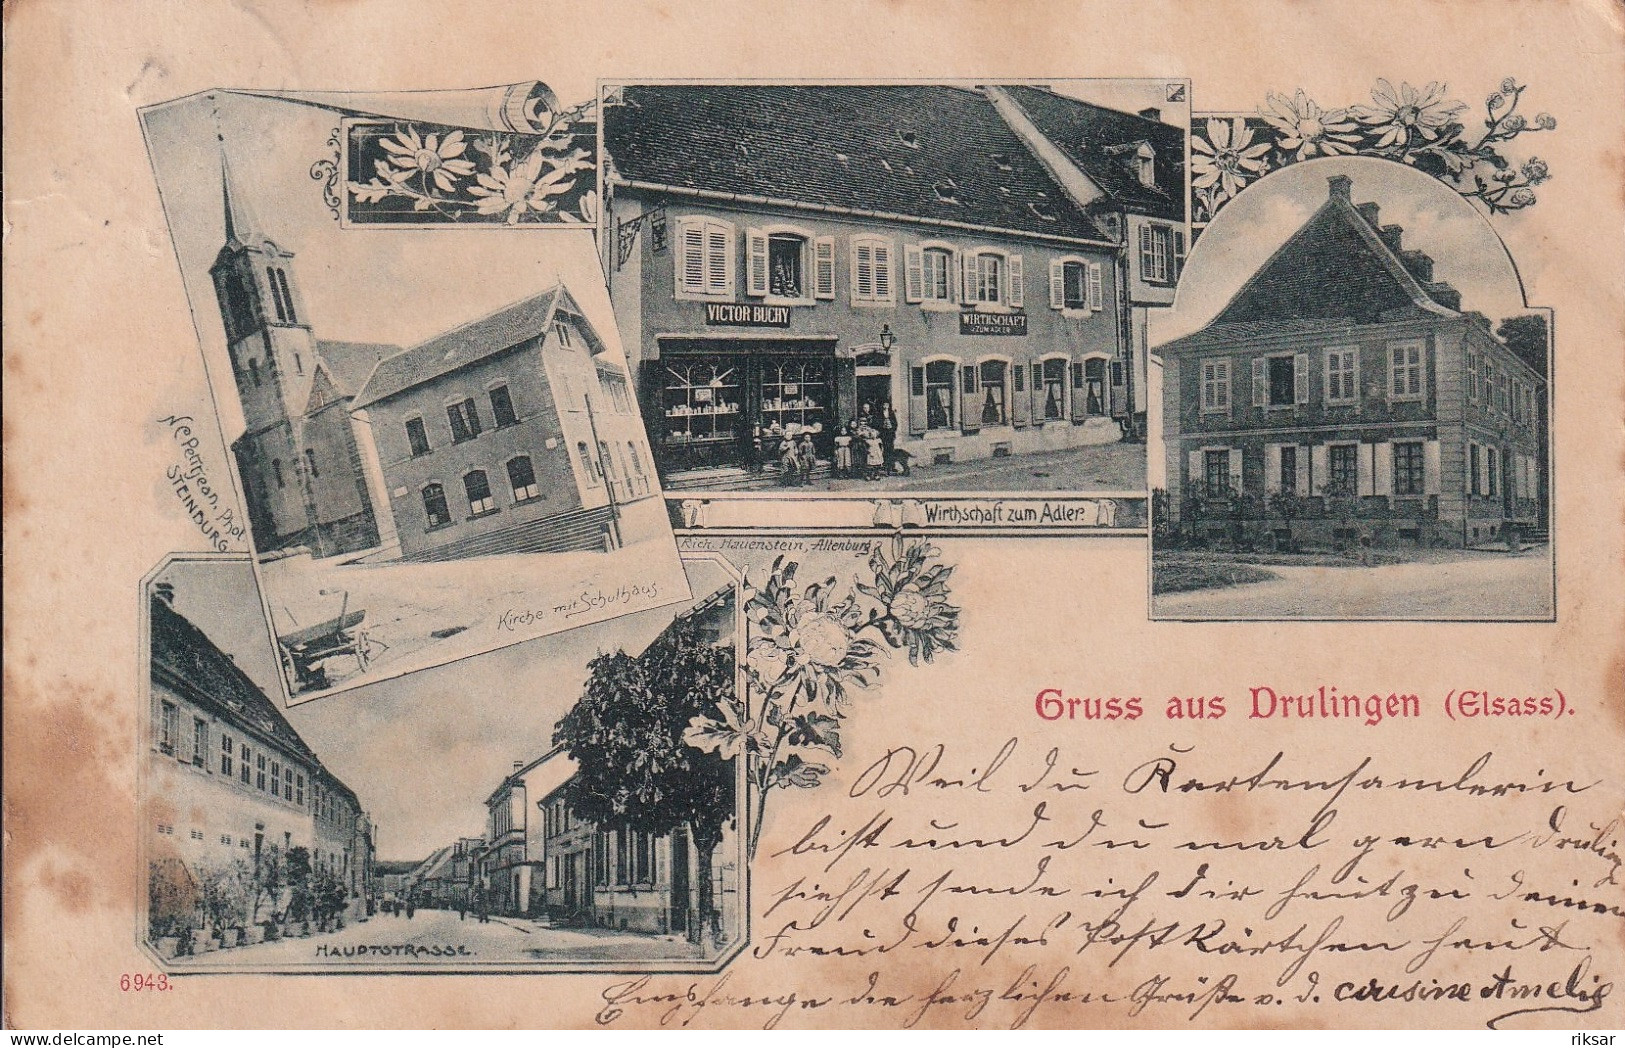 VICTOR BUCHY
WIRTHSCHAFT
ZUM ADLER
N C Petitjean, Phot.
STEINBURG
Kirche mit Schulhaus.
Wirthschaft zum Adler.
Rich. Hauenstein, Altenburg
HAUPTSTRASSE.
6943.
Gruss aus Drulingen (Elsass).
Weil du Kartensamlerin
bist und du mal gern Druling
siehst sende ich dir heut zu deinen
Freud dieses PostKärtchen heut
Empfange die herzlichen Grüße v. d. cousine Amelie
riksar